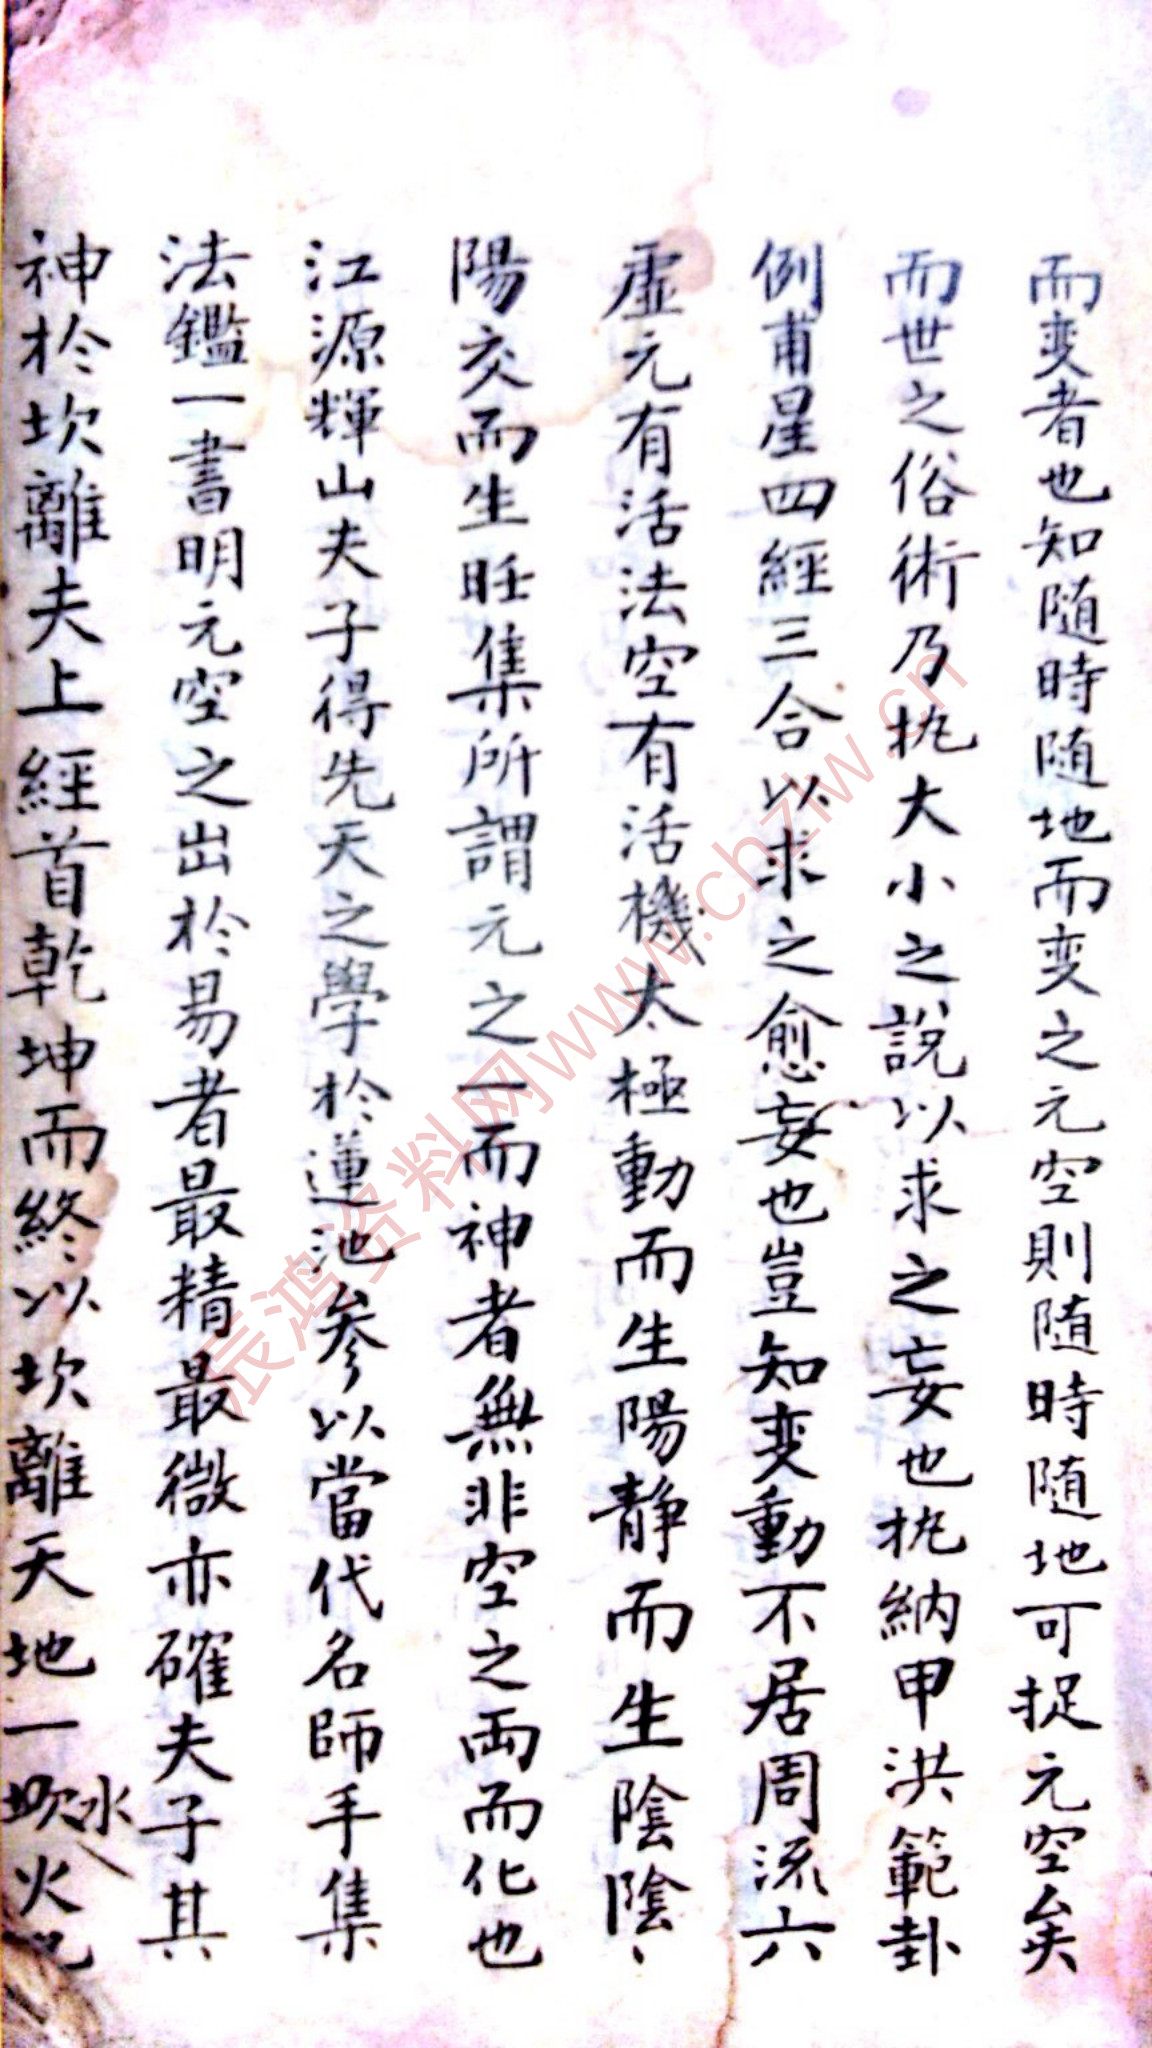 而变者也知随時随地而变之元空則随時随地可捉元空矣
而世之俗術乃执大小之說以求之妄也执納甲洪範卦
例甫星四經三合以求之愈妄也豈知变動不居周流六
虛元有活法空有活機太極動而生陽静而生陰陰、
陽交而生旺集所謂元之一而神者無非空之両而化也
江源輝山夫子得先天之學於蓮池参以當代名師手集
法鑑一書明元空之出於易者最精最微亦確夫子其
神於坎離夫上經首乾坤而終以坎離天地一坎水火
辰鸿资料网www.chzlw.cn